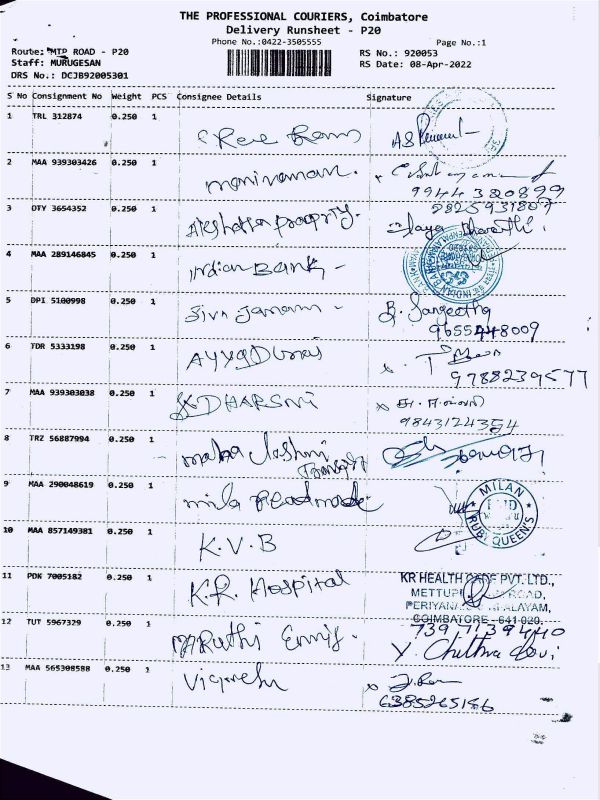 THE PROFESSIONAL COURIERS, Coimbatore
Delivery Runsheet - P20
Phone No.:0422-3505555
Page No.:1
Route: MTP ROAD - P20
RS No.: 920053
Staff: MURUGESAN
RS Date: 08-Apr-2022
DRS No.: DCJB92005301
S No Consignment No Weight PCS Consignee Details Signature
1 TRL 312874 0.250 1
2 MAA 939303426 0.250 1 manivaman.
9944320899
3 DTY 3654352 0.250 1 Akshatha property.
9825931807
Jaya Bharathi.
4 MAA 289146845 0.250 1 Indian Bank -
5 DPI 5100998 0.250 1 Siva Janani - B. Sangeetha
9655448009
6 TDR 5333198 0.250 1
9788239577
7 MAA 939303038 0.250 1 DHARSNI
9843124354
8 TRZ 56887994 0.250 1 maha lashmi
Transport
9 MAA 290048619 0.250 1 mila Readmade
MILAN
RUBY QUEEN'S
10 MAA 857149381 0.250 1 K.V.B
11 PDK 7005182 0.250 1 K.R. Hospital
KR HEALTH CARE PVT. LTD.,
ROAD,
COIMBATORE - 641 020.
12 TUT 5967329 0.250 1 maruthi Ennis.
7397139440
Y. Chithra devi
13 MAA 565308588 0.250 1 Vignesh
6385265156